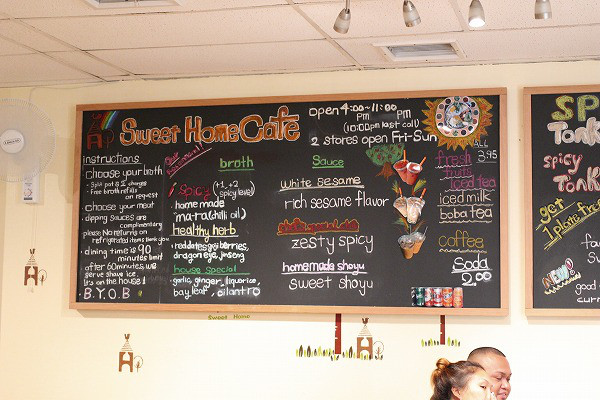 Sweet Home Cafe
OPEN 4:00~11:00
Pm Pm
(10:00pm last call)
2 stores open Fri-Sun
instructions
• choose your broth
- split pot $2 charges
- free broth refills
on request
• choose your meat
• dipping sauces are
complimentary
please no returning on
refrigerated items thank you
• dining time is 90
minutes limit
after 60 minutes we
serve shave ice
it's on the house!
B.Y.O.B
broth
spicy (+1, +2
spicy level)
home made
mara (chili oil)
healthy herb
red dates goji berries,
dragon eye, jinseng
house special
garlic, ginger, liquorice,
bay leaf, cilantro
Sauce
white sesame
rich sesame flavor
zesty spicy
homemade shoyu
sweet shoyu
ALL
3.95
fresh
fruits
iced tea
iced milk
boba tea
coffee
Soda
2.00
Sweet Home
Spicy
Tonk
get
1 plate free
good
curr